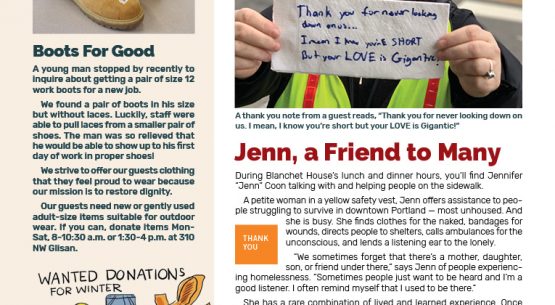 Boots For Good
A young man stopped by recently to
inquire about getting a pair of size 12
work boots for a new job.
We found a pair of boots in his size
but without laces. Luckily, staff were
able to pull laces from a smaller pair of
shoes. The man was so relieved that
he would be able to show up to his first
day of work in proper shoes!
We strive to offer our guests clothing
that they feel proud to wear because
our mission is to restore dignity.
Our guests need new or gently used
adult-size items suitable for outdoor
wear. If you can, donate items Mon-
Sat, 8-10:30 a.m. or 1:30-4 p.m. at 310
NW Glisan.
WANTED DONATIONS
FOR WINTER
Thank you for never looking
down on us...
I mean I know you're SHORT
But your LOVE is Gigantic!
A thank you note from a guest reads, “Thank you for never looking down on
us. I mean, I know you’re short but your LOVE is Gigantic!”
Jenn, a Friend to Many
During Blanchet House’s lunch and dinner hours, you’ll find Jennifer
“Jenn” Coon talking with and helping people on the sidewalk.
A petite woman in a yellow safety vest, Jenn offers assistance to peo-
ple struggling to survive in downtown Portland — most unhoused. And
she is busy. She finds clothes for the naked, bandages for
wounds, directs people to shelters, calls ambulances for the
unconscious, and lends a listening ear to the lonely.
THANK
YOU
“We sometimes forget that there’s a mother, daughter,
son, or friend under there,” says Jenn of people experienc-
ing homelessness. “Sometimes people just want to be heard and I’m a
good listener. I often remind myself that I used to be there.”
She has a rare combination of lived and learned experience. Once